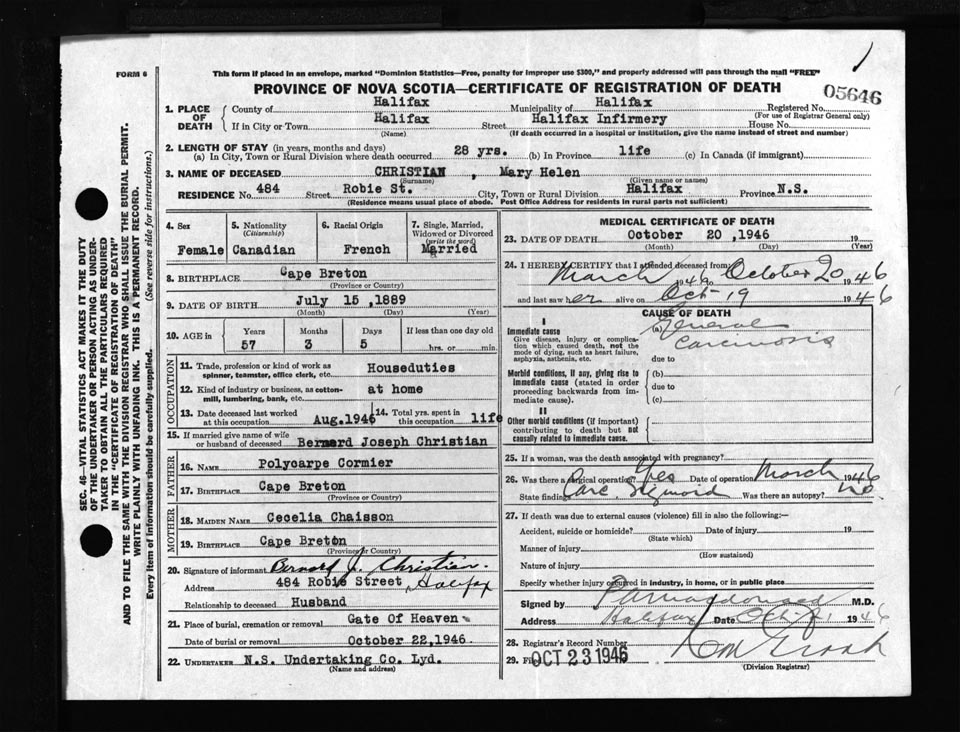 FORM 6
This form if placed in an envelope, marked "Dominion Statistics—Free, penalty for improper use $300," and properly addressed will pass through the mail "FREE"
PROVINCE OF NOVA SCOTIA—CERTIFICATE OF REGISTRATION OF DEATH
05646
1. PLACE OF DEATH
County of Halifax Municipality of Halifax Registered No.
(For use of Registrar General only)
If in City or Town Halifax Street Halifax Infirmery House No.
(Name) (If death occurred in a hospital or institution, give the name instead of street and number)
2. LENGTH OF STAY (in years, months and days)
(a) In City, Town or Rural Division where death occurred 28 yrs. (b) In Province life (c) In Canada (if immigrant)
3. NAME OF DECEASED CHRISTIAN, Mary Helen
(Surname) (Given name or names)
RESIDENCE No. 484 Street Robie St. City, Town or Rural Division Halifax Province N.S.
(Residence means usual place of abode. Post Office Address for residents in rural parts not sufficient)
4. Sex 5. Nationality (Citizenship) 6. Racial Origin 7. Single, Married, Widowed or Divorced (write the word)
Female Canadian French Married
8. BIRTHPLACE Cape Breton
(Province or Country)
9. DATE OF BIRTH July 15,1889
(Month) (Day) (Year)
10. AGE in Years Months Days If less than one day old
57 3 5 hrs. or min.
OCCUPATION
11. Trade, profession or kind of work as spinner, teamster, office clerk, etc. Houseduties
12. Kind of industry or business, as cotton-mill, lumbering, bank, etc. at home
13. Date deceased last worked at this occupation Aug.1946 14. Total yrs. spent in this occupation life
15. If married give name of wife or husband of deceased Bernard Joseph Christian
FATHER
16. NAME Polycarpe Cormier
17. BIRTHPLACE Cape Breton
(Province or Country)
MOTHER
18. MAIDEN NAME Cecelia Chaisson
19. BIRTHPLACE Cape Breton
(Province or Country)
20. Signature of informant Bernard J. Christian.
Address 484 Robie Street, Halifax
Relationship to deceased Husband
21. Place of burial, cremation or removal Gate Of Heaven
Date of burial or removal October 22,1946
22. UNDERTAKER N.S. Undertaking Co. Lyd.
(Name and address)
MEDICAL CERTIFICATE OF DEATH
23. DATE OF DEATH October 20,1946 19
(Month) (Day) (Year)
24. I HEREBY CERTIFY that I attended deceased from
March 1946 to October 20 1946
and last saw her alive on Oct-19 1946
CAUSE OF DEATH
I
Immediate cause (a) General Carcinosis
Give disease, injury or complication which caused death, not the mode of dying, such as heart failure, asphyxia, asthenia, etc.
due to
Morbid conditions, if any, giving rise to immediate cause (stated in order proceeding backwards from immediate cause).
(b)
due to
(c)
II
Other morbid conditions (if important) contributing to death but not causally related to immediate cause.
25. If a woman, was the death associated with pregnancy?
26. Was there a surgical operation? Yes Date of operation March 1946
State findings Carc. Sigmoid Was there an autopsy? no.
27. If death was due to external causes (violence) fill in also the following:—
Accident, suicide or homicide? Date of injury 19
(State which)
Manner of injury
(How sustained)
Nature of injury
Specify whether injury occurred in industry, in home, or in public place
Signed by M.D.
Address Halifax Date Oct 1946
28. Registrar's Record Number
29. OCT 23 1946
(Division Registrar)
SEC. 46—VITAL STATISTICS ACT MAKES IT THE DUTY
OF THE UNDERTAKER OR PERSON ACTING AS UNDER-
TAKER TO OBTAIN ALL THE PARTICULARS REQUIRED
IN THE "CERTIFICATE OF REGISTRATION OF DEATH"
AND TO FILE THE SAME WITH THE DIVISION REGISTRAR WHO SHALL ISSUE THE BURIAL PERMIT.
WRITE PLAINLY WITH UNFADING INK. THIS IS A PERMANENT RECORD.
Every item of information should be carefully supplied. (See reverse side for instructions.)